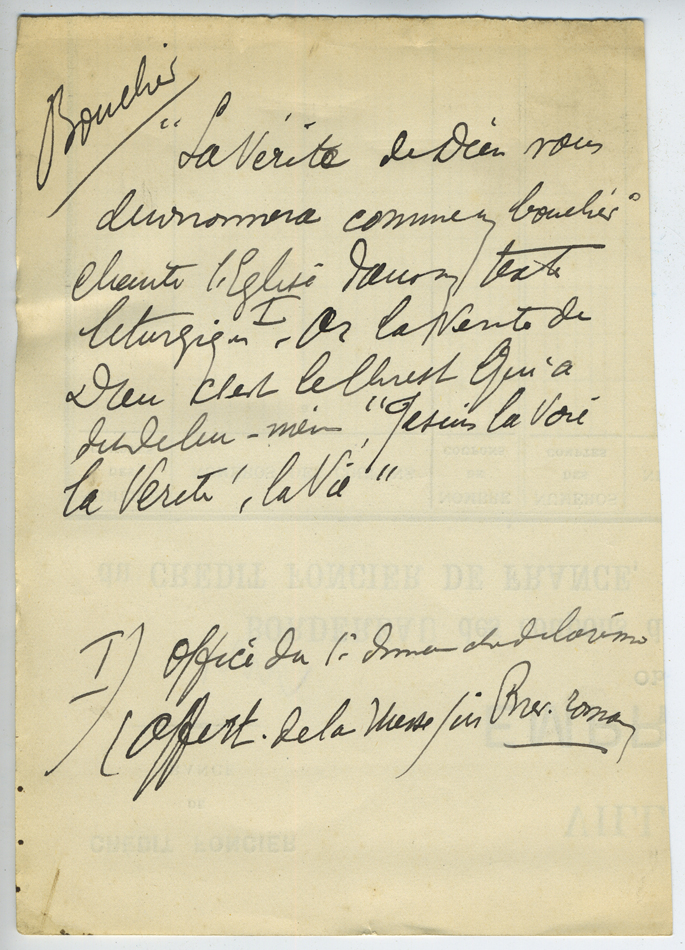 Bouclier
"La Vérité de Dieu vous
environnera comme un bouclier"
chante l'Eglise dans un texte
liturgique I. Or la Vérité de
Dieu c'est le Christ Qui a
dit de lui-même "Je suis la Voie
la Vérité, la Vie"
I) Office du 1er dimanche de Carême
(Offert. de la Messe in Brev. roman